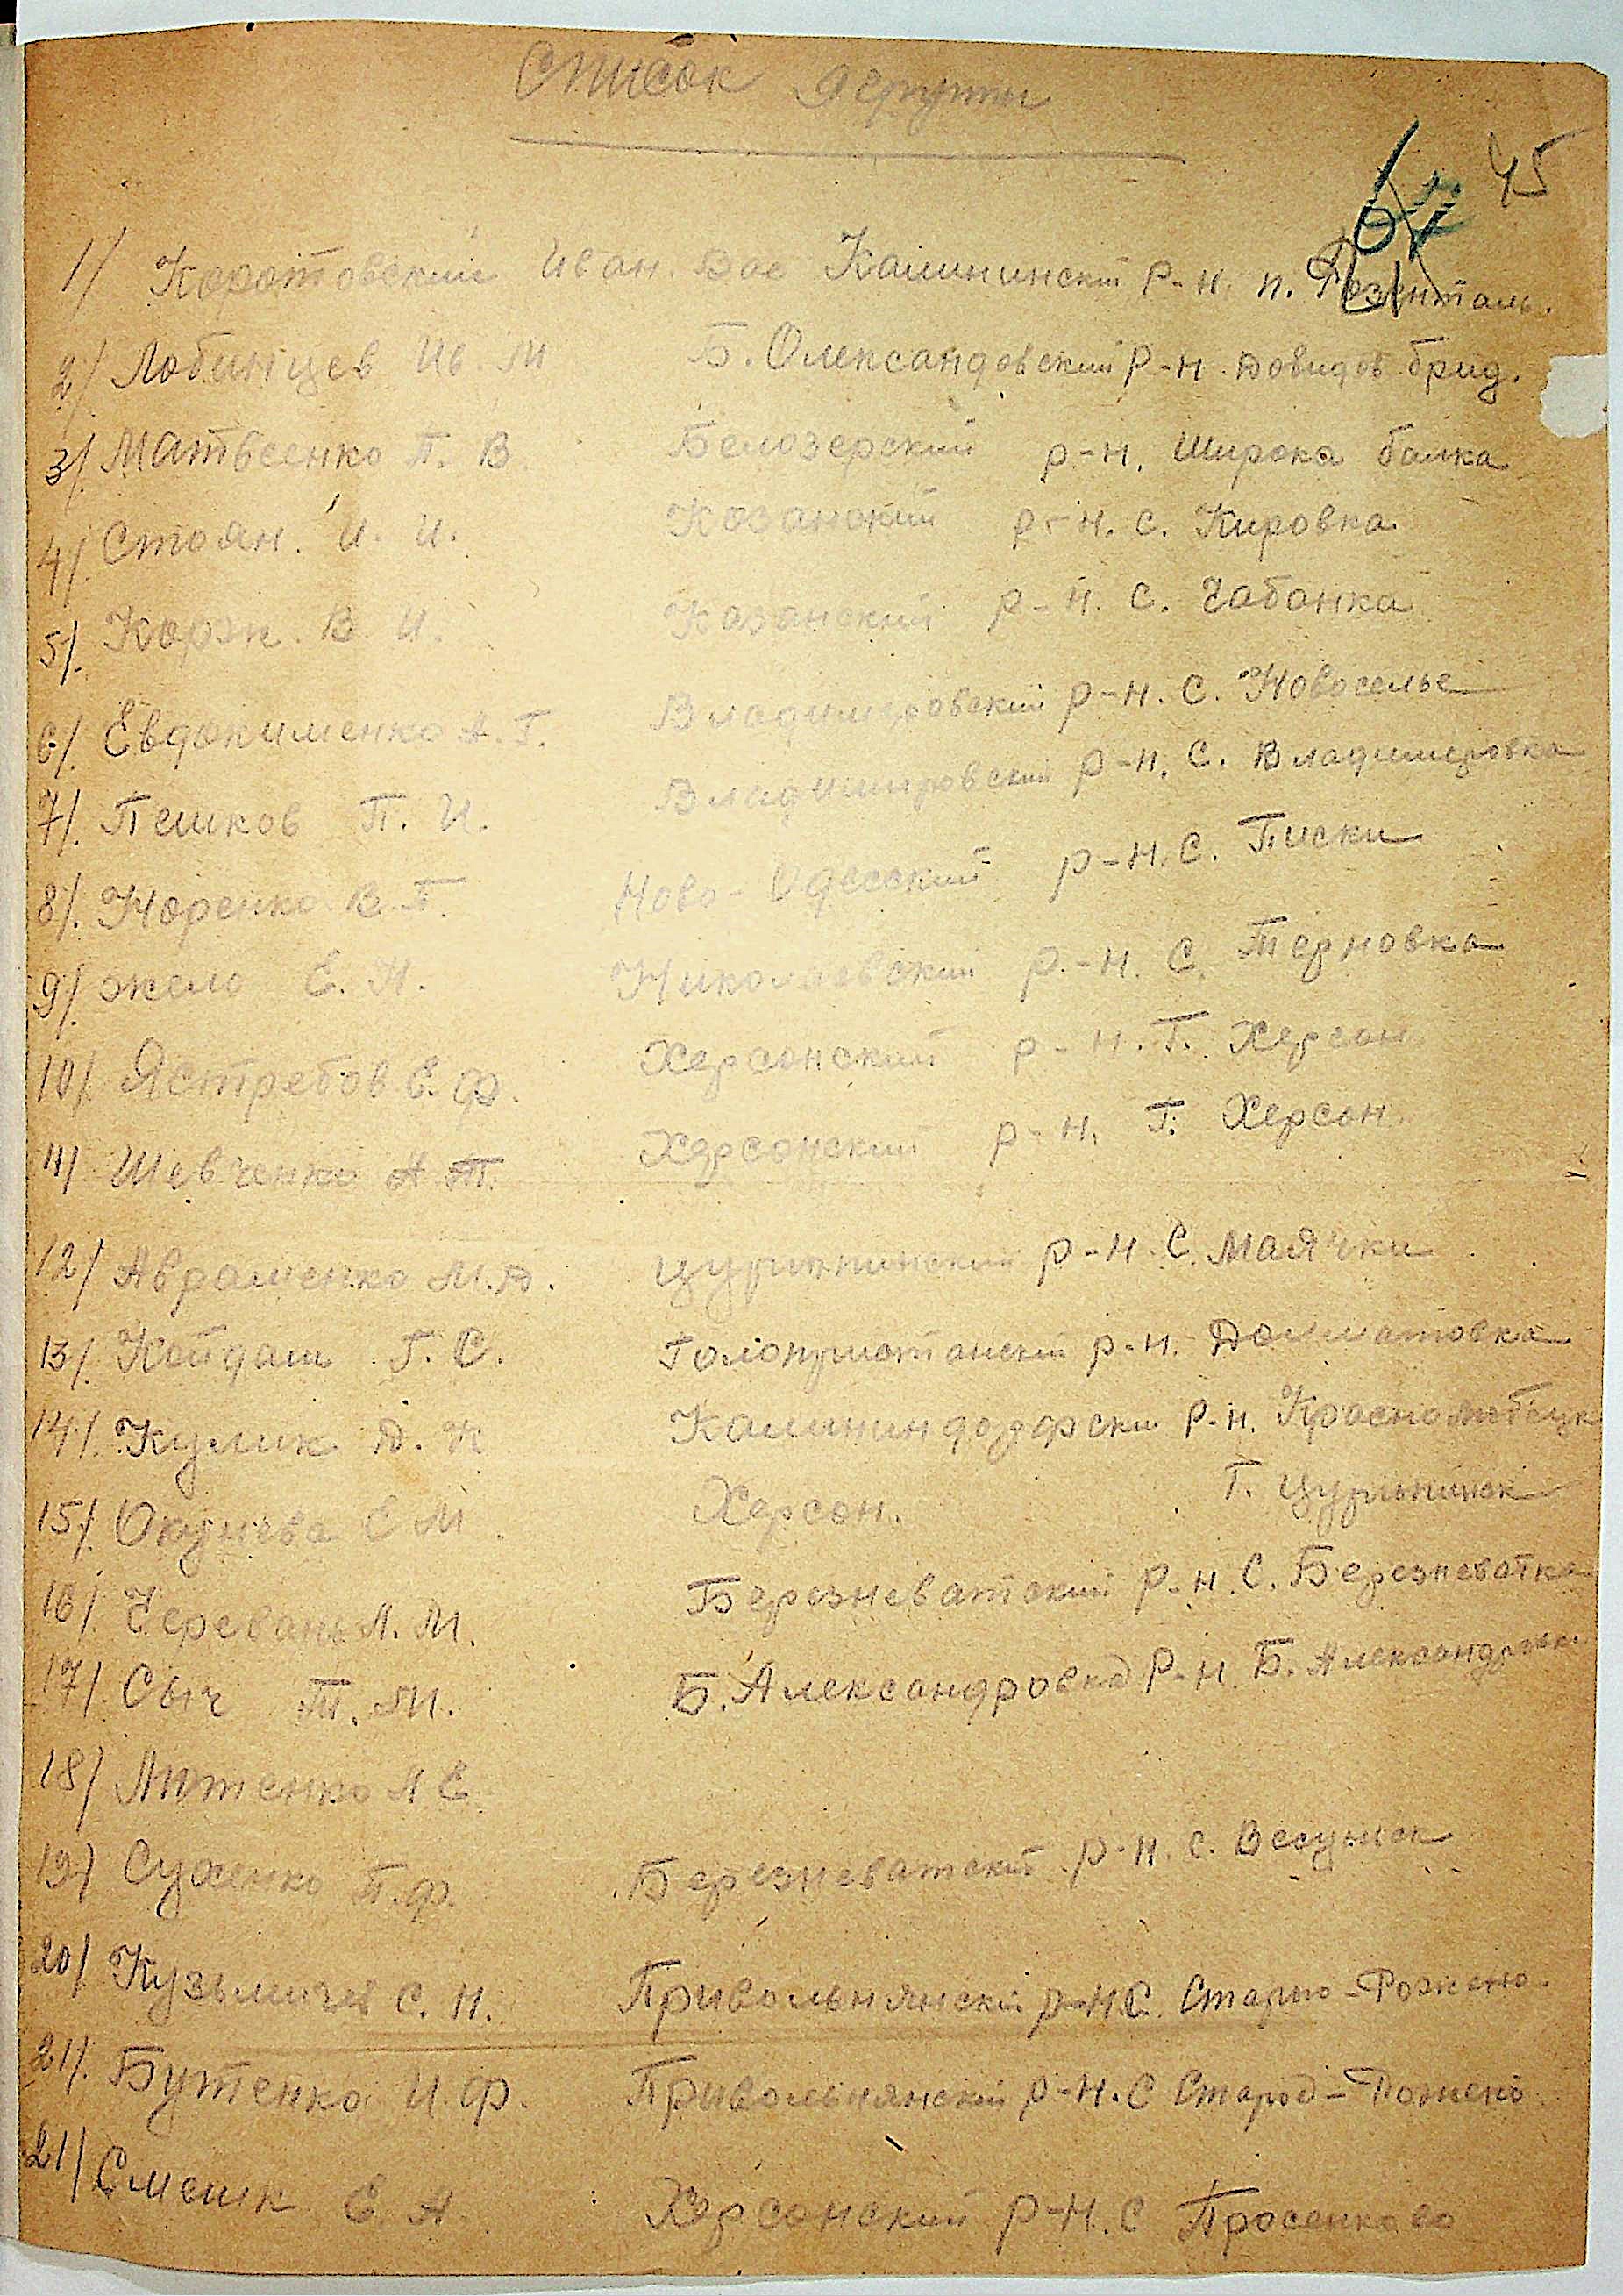 Список
45
1/ Коротовский Иван. Вас Калининский р-н. п. Розенталь.
2/ Лобинцев Ив. М Б. Олександовский р-н. Довидов брид.
3/. Матвеенко П. В. Белозерский р-н. Широка балка
4/. Стоян. И. И. Козанский р-н. с. Кировка.
5/. Корж. В. И. Казанский р-н. с. Чабонка
6/. Евдокименко А. Г. Владимировский р-н. С. Новоселье
7/. Пешков П. И. Владимировский р-н. С. Владимировка
8/. Норенко В. Г. Ново-Одесский р-н. С. Писки
9/. Е. Н. Николаевский р.-н. С. Терновка
10/. Ястребов Е. Ф. Херсонский р-н. Г. Херсон
11/ Шевченко А. Т. Херсонский р-н. Г. Херсон.
12/ Авраменко М. Д. Цурюпинский р-н. С. Маячки
13/. Кайдаш Г. С. р-н. Долматовка
14/. Кулик Д. К р-н.
15/. Окунева Е М. Херсон. Г. Цурюпинск
16/. Черевань А. М. Березневатский р-н. С. Березневатка
17/. Сыч Т. М. Б. Александровка р-н. Б. Александровка
18/ А Е
19/ Сухенко П. Ф. Березневатский р-н. с.
20/. Кузьмичев С. Н. Привольнянский р-н. С.
21/. Бутенко И. Ф. Привольнянский р-н. С
21/ Смешк Е. А. Херсонский р-н. С